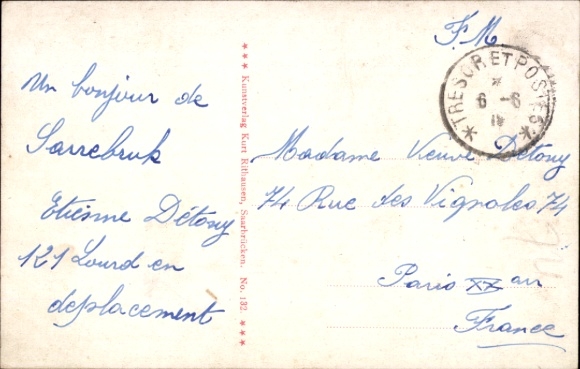 F.M
TRESOR ET POSTES
*
6 - 6
Un bonjour de
Sarrebruk
Etienne Détony
121 Lourd en
deplacement
*** Kunstverlag Kurt Rithausen, Saarbrücken. No. 132. ***
Madame Veuve Détony
74 Rue des Vignoles 74
Paris XX arr
France